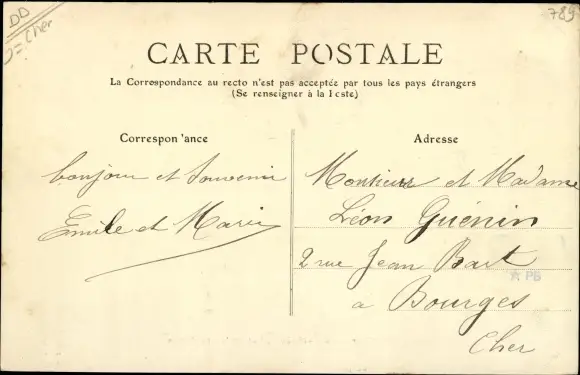 DD
D = Cher
789
CARTE POSTALE
La Correspondance au recto n'est pas acceptée par tous les pays étrangers
(Se renseigner à la Poste)
Correspon 'ance
bonjour et Souvenir
Emile et Marie
Adresse
Monsieur et Madame
Léon Guénin
2 rue Jean Bart
PB
a Bourges
Cher